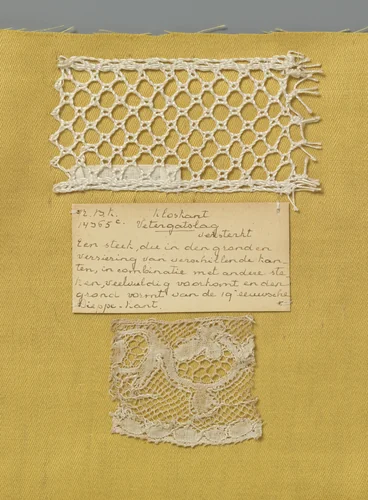 Kloskant
14965 c. Vetergatslag
versterkt
Een steek, die in den grond en
versiering van verschillende kan-
ten, in combinatie met andere ste
ken veelvuldig voorkomt en den
grond vormt van de 19e eeuwsche
Dieppe-kant.